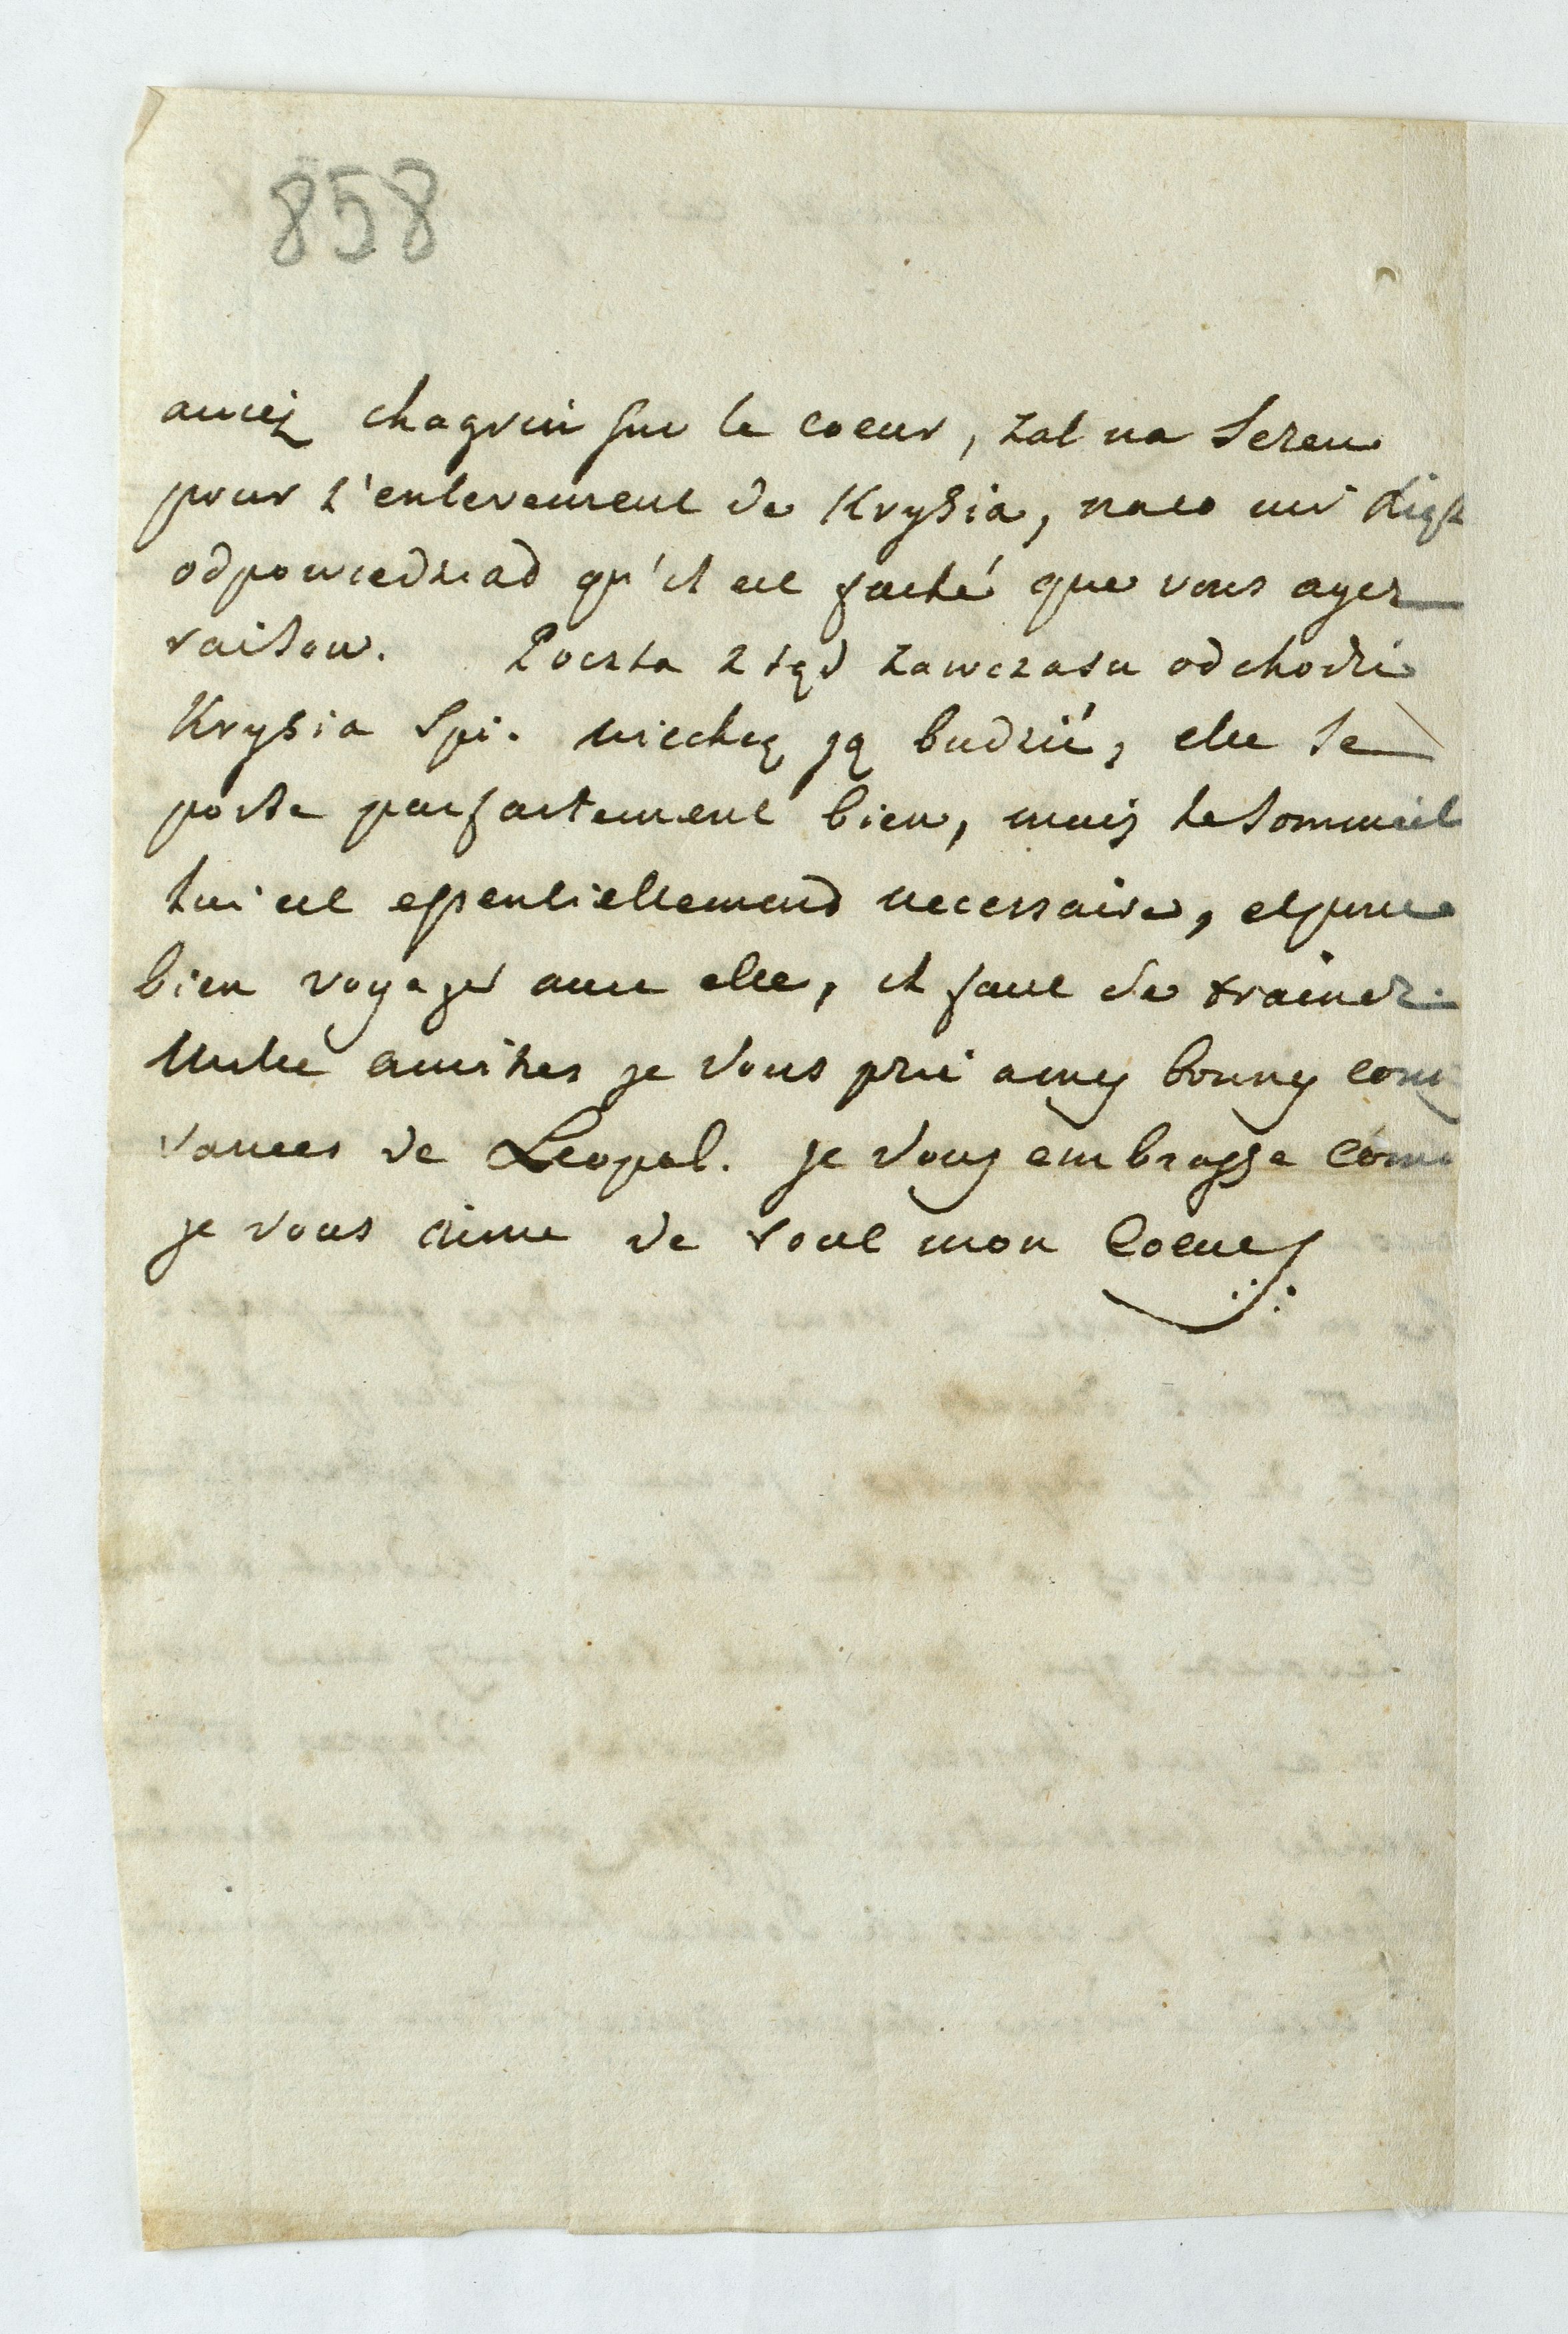 858
aviez chagrin sur le coeur, zal na Sercu
pour l'enlevement de Krysia, naco mi Xiąz
odpowiedziad qu'il est faché que vous ayez
raison. Poczta ztąd zawczasu odchodzi
Krysia Spi. niechcę ją budzić, elle se
porte parfaitement bien, mais le Sommeil
lui est essentiellement necessaire, et pour
bien voyager avec elle, il faut de trainer.
Mille amities je vous prie a mes bonnes con
vances de Leopol. je vous embrasse com
je vous aime de tout mon Coeur